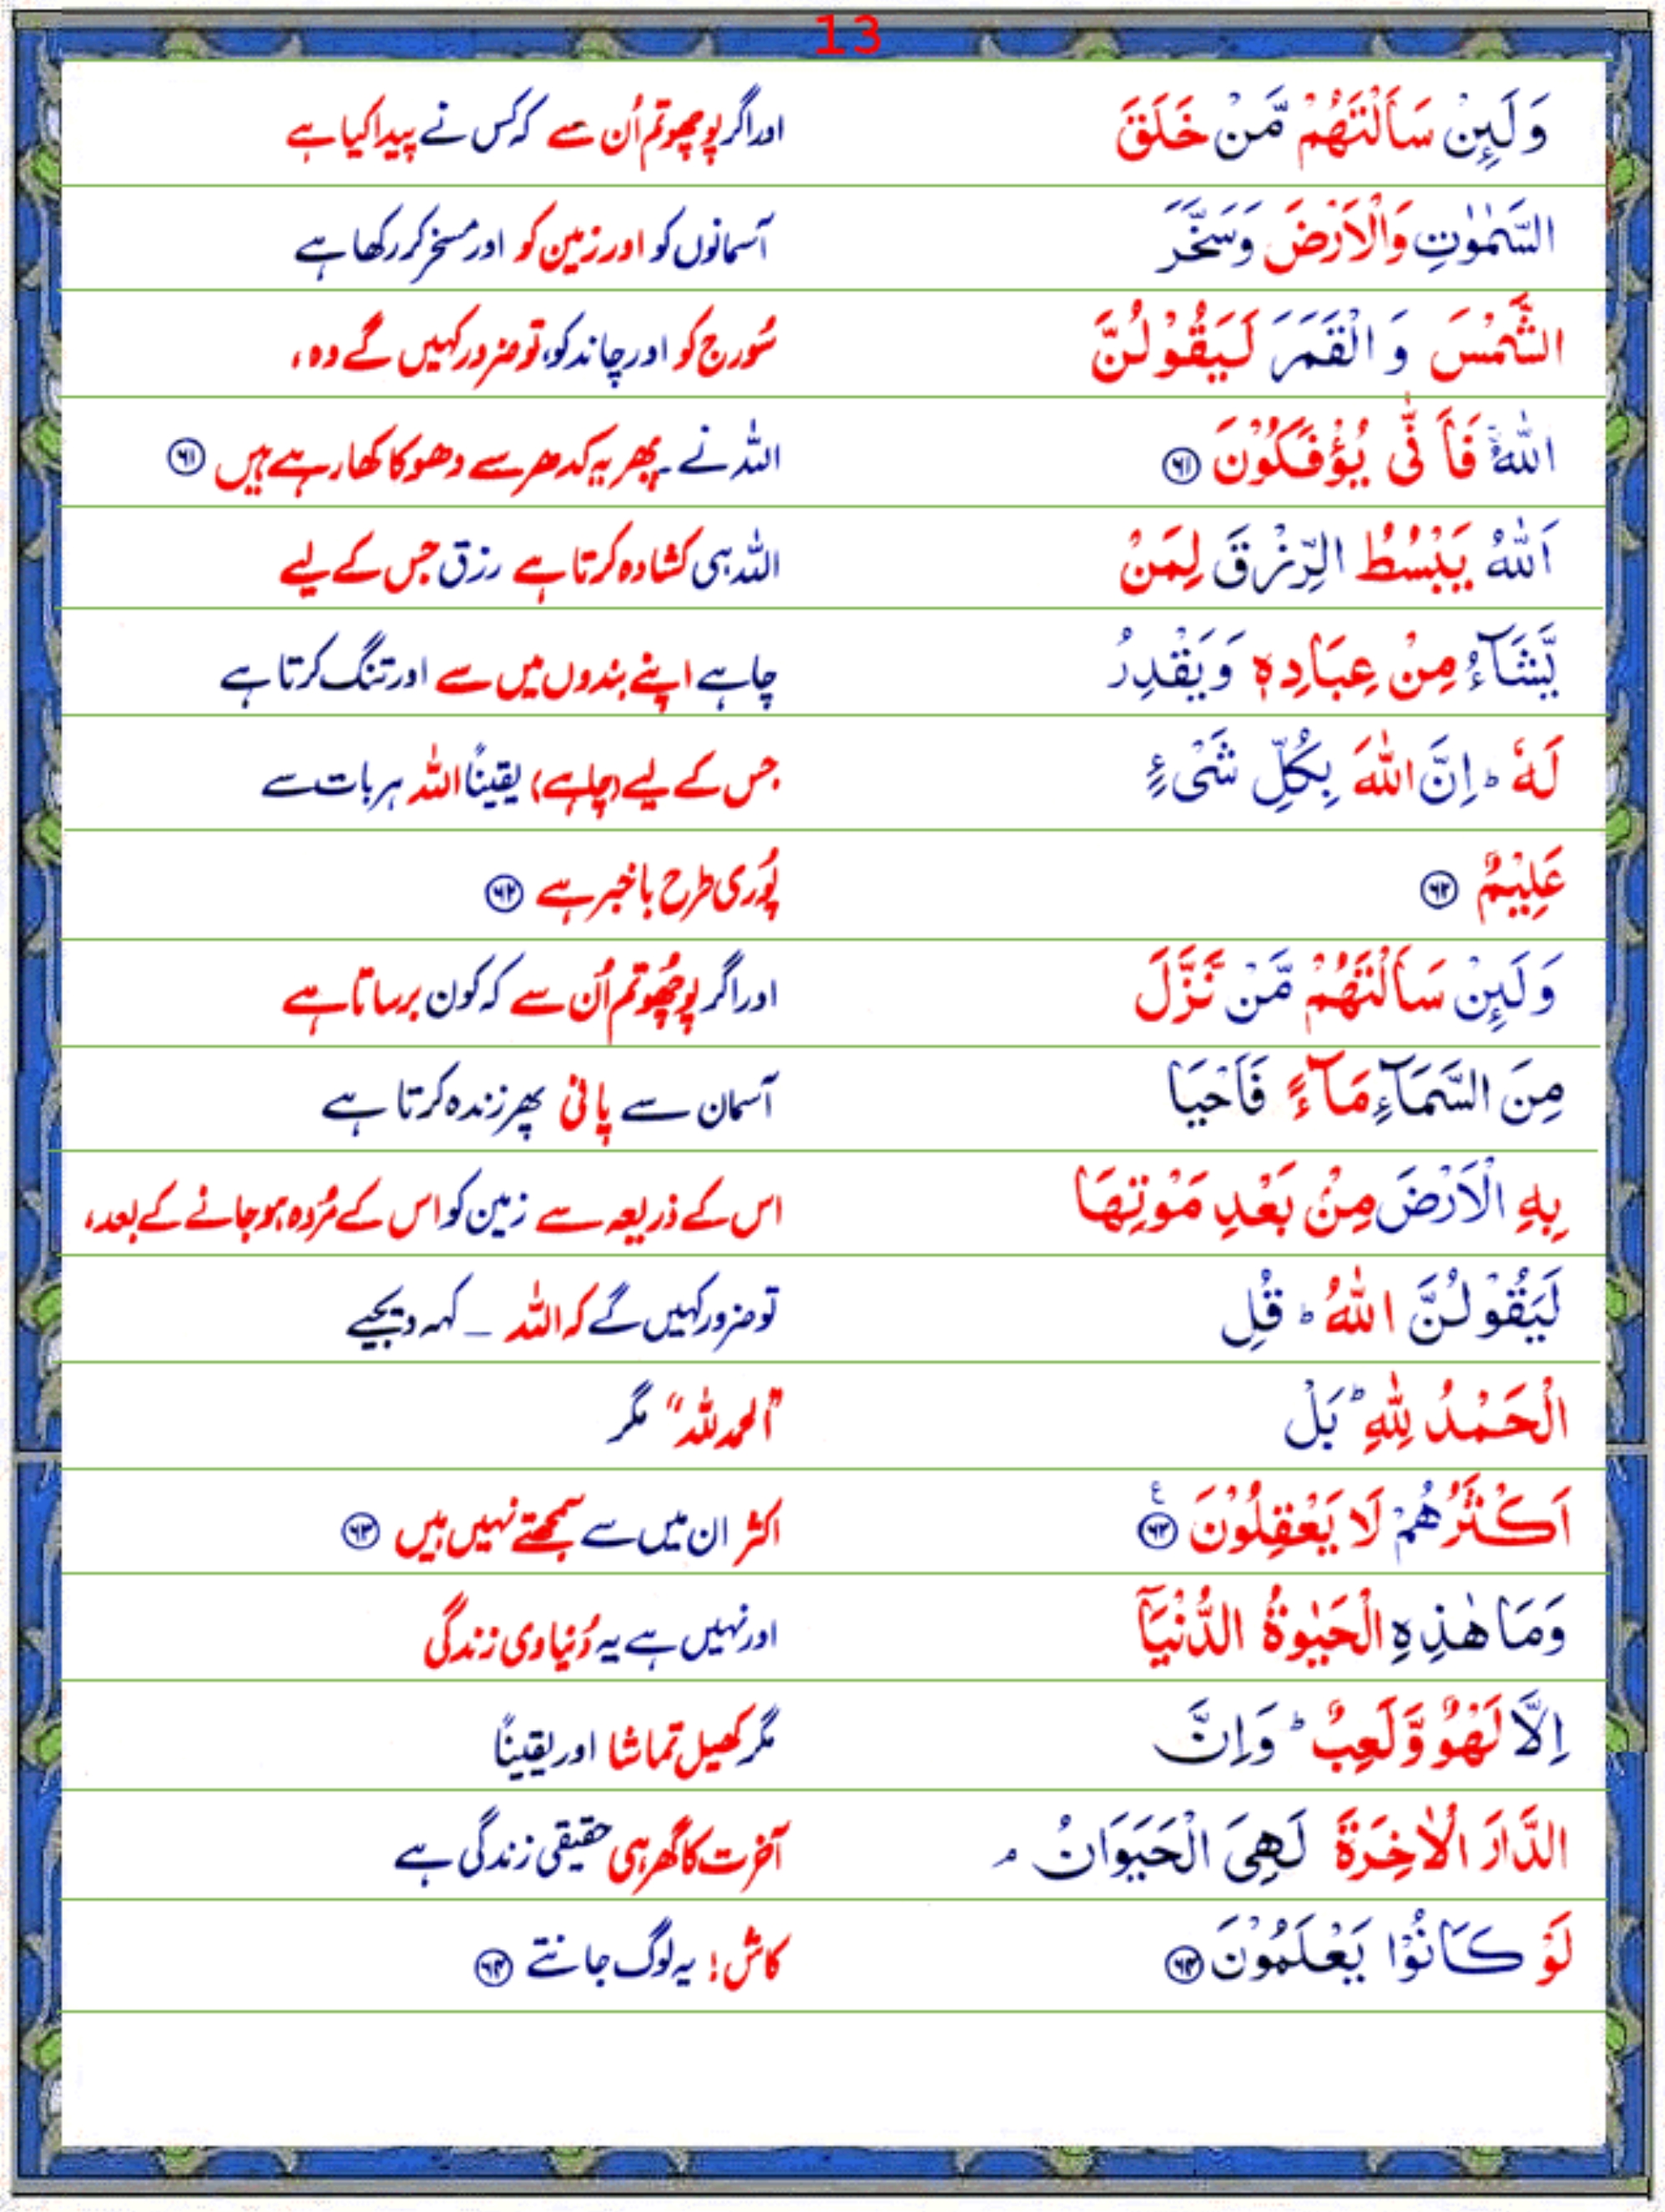 13
وَلَىِٕنْ سَاَلْتَهُمْ مَّنْ خَلَقَ اور اگر پوچھو تم اُن سے کہ کس نے پیدا کیا ہے
السَّمٰوٰتِ وَالْاَرْضَ وَسَخَّرَ آسمانوں کو اور زمین کو اور مسخر کر رکھا ہے
الشَّمْسَ وَ الْقَمَرَ لَيَقُوْلُنَّ سُورج کو اور چاند کو، تو ضرور کہیں گے وہ،
اللّٰهُ ۚ فَاَنّٰى يُؤْفَكُوْنَ ۶۱ اللہ نے۔ پھر یہ کدھر سے دھوکا کھا رہے ہیں ۶۱
اَللّٰهُ يَبْسُطُ الرِّزْقَ لِمَنْ اللہ ہی کشادہ کرتا ہے رزق جس کے لیے
يَّشَآءُ مِنْ عِبَادِهٖ وَيَقْدِرُ چاہے اپنے بندوں میں سے اور تنگ کرتا ہے
لَهٗ ؕ اِنَّ اللّٰهَ بِكُلِّ شَىْءٍ جس کے لیے (چاہے) یقیناً اللہ ہر بات سے
عَلِيْمٌ ۶۲ پُوری طرح باخبر ہے ۶۲
وَلَىِٕنْ سَاَلْتَهُمْ مَّنْ نَّزَّلَ اور اگر پوچھو تم اُن سے کہ کون برساتا ہے
مِنَ السَّمَآءِ مَآءً فَاَحْيَا آسمان سے پانی پھر زندہ کرتا ہے
بِهِ الْاَرْضَ مِنْۢ بَعْدِ مَوْتِهَا اس کے ذریعہ سے زمین کو اس کے مُردہ ہو جانے کے بعد،
لَيَقُوْلُنَّ اللّٰهُ ؕ قُلِ تو ضرور کہیں گے کہ اللہ ــ کہہ دیجیے
الْحَمْدُ لِلّٰهِ ؕ بَلْ "الحمد للہ" مگر
اَكْثَرُهُمْ لَا يَعْقِلُوْنَ ۶۳ ع اکثر ان میں سے سمجھتے نہیں ہیں ۶۳
وَمَا هٰذِهِ الْحَيٰوةُ الدُّنْيَاۤ اور نہیں ہے یہ دُنیاوی زندگی
اِلَّا لَهْوٌ وَّلَعِبٌ ؕ وَاِنَّ مگر کھیل تماشا اور یقیناً
الدَّارَ الْاٰخِرَةَ لَهِىَ الْحَيَوَانُ ۘ آخرت کا گھر ہی حقیقی زندگی ہے
لَوْ كَانُوْا يَعْلَمُوْنَ ۶۴ کاش! یہ لوگ جانتے ۶۴